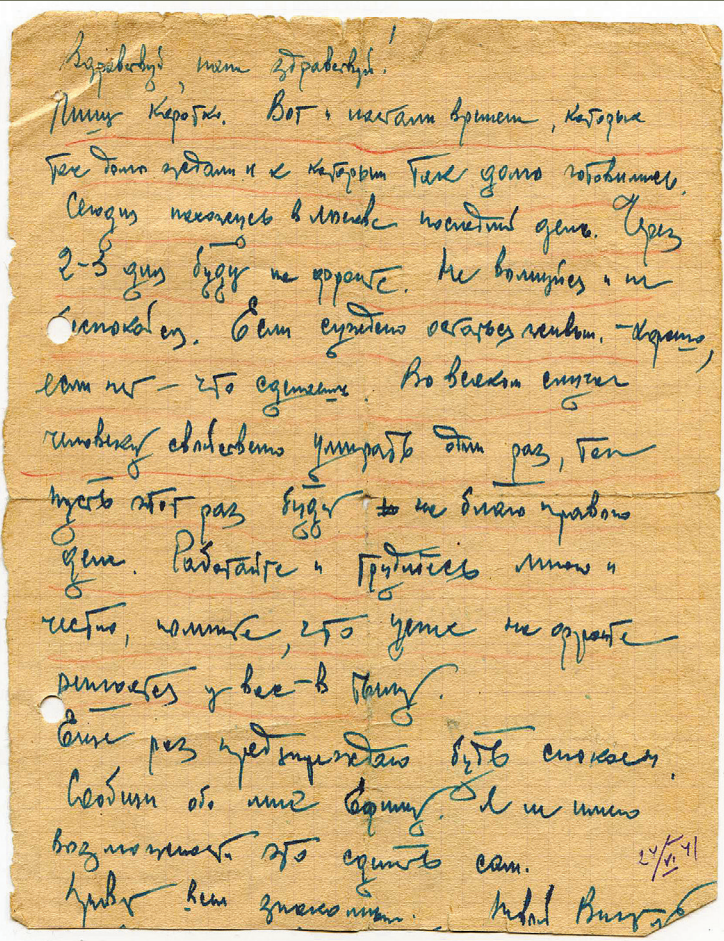 Здравствуй, папа, здравствуй!
Пишу коротко. Вот и настали времена, которые
так долго ждали и к которым так долго готовились.
Сегодня нахожусь в Москве последний день. Через
2-3 дня буду на фронте. Не волнуйся и не
беспокойся. Если суждено остаться живым, - хорошо,
если нет - что сделаешь. Во всяком случае
человеку свойственно умирать один раз, так
пусть этот раз будет на благо правого
дела. Работайте и трудитесь много и
честно, помните, что успех на фронте
у вас - в тылу.
Еще раз предупреждаю быть спокоен.
Сообщи обо мне Едику. Я не имею
возможности это сделать сам.
Привет всем знакомым. Твой
24/VI 41